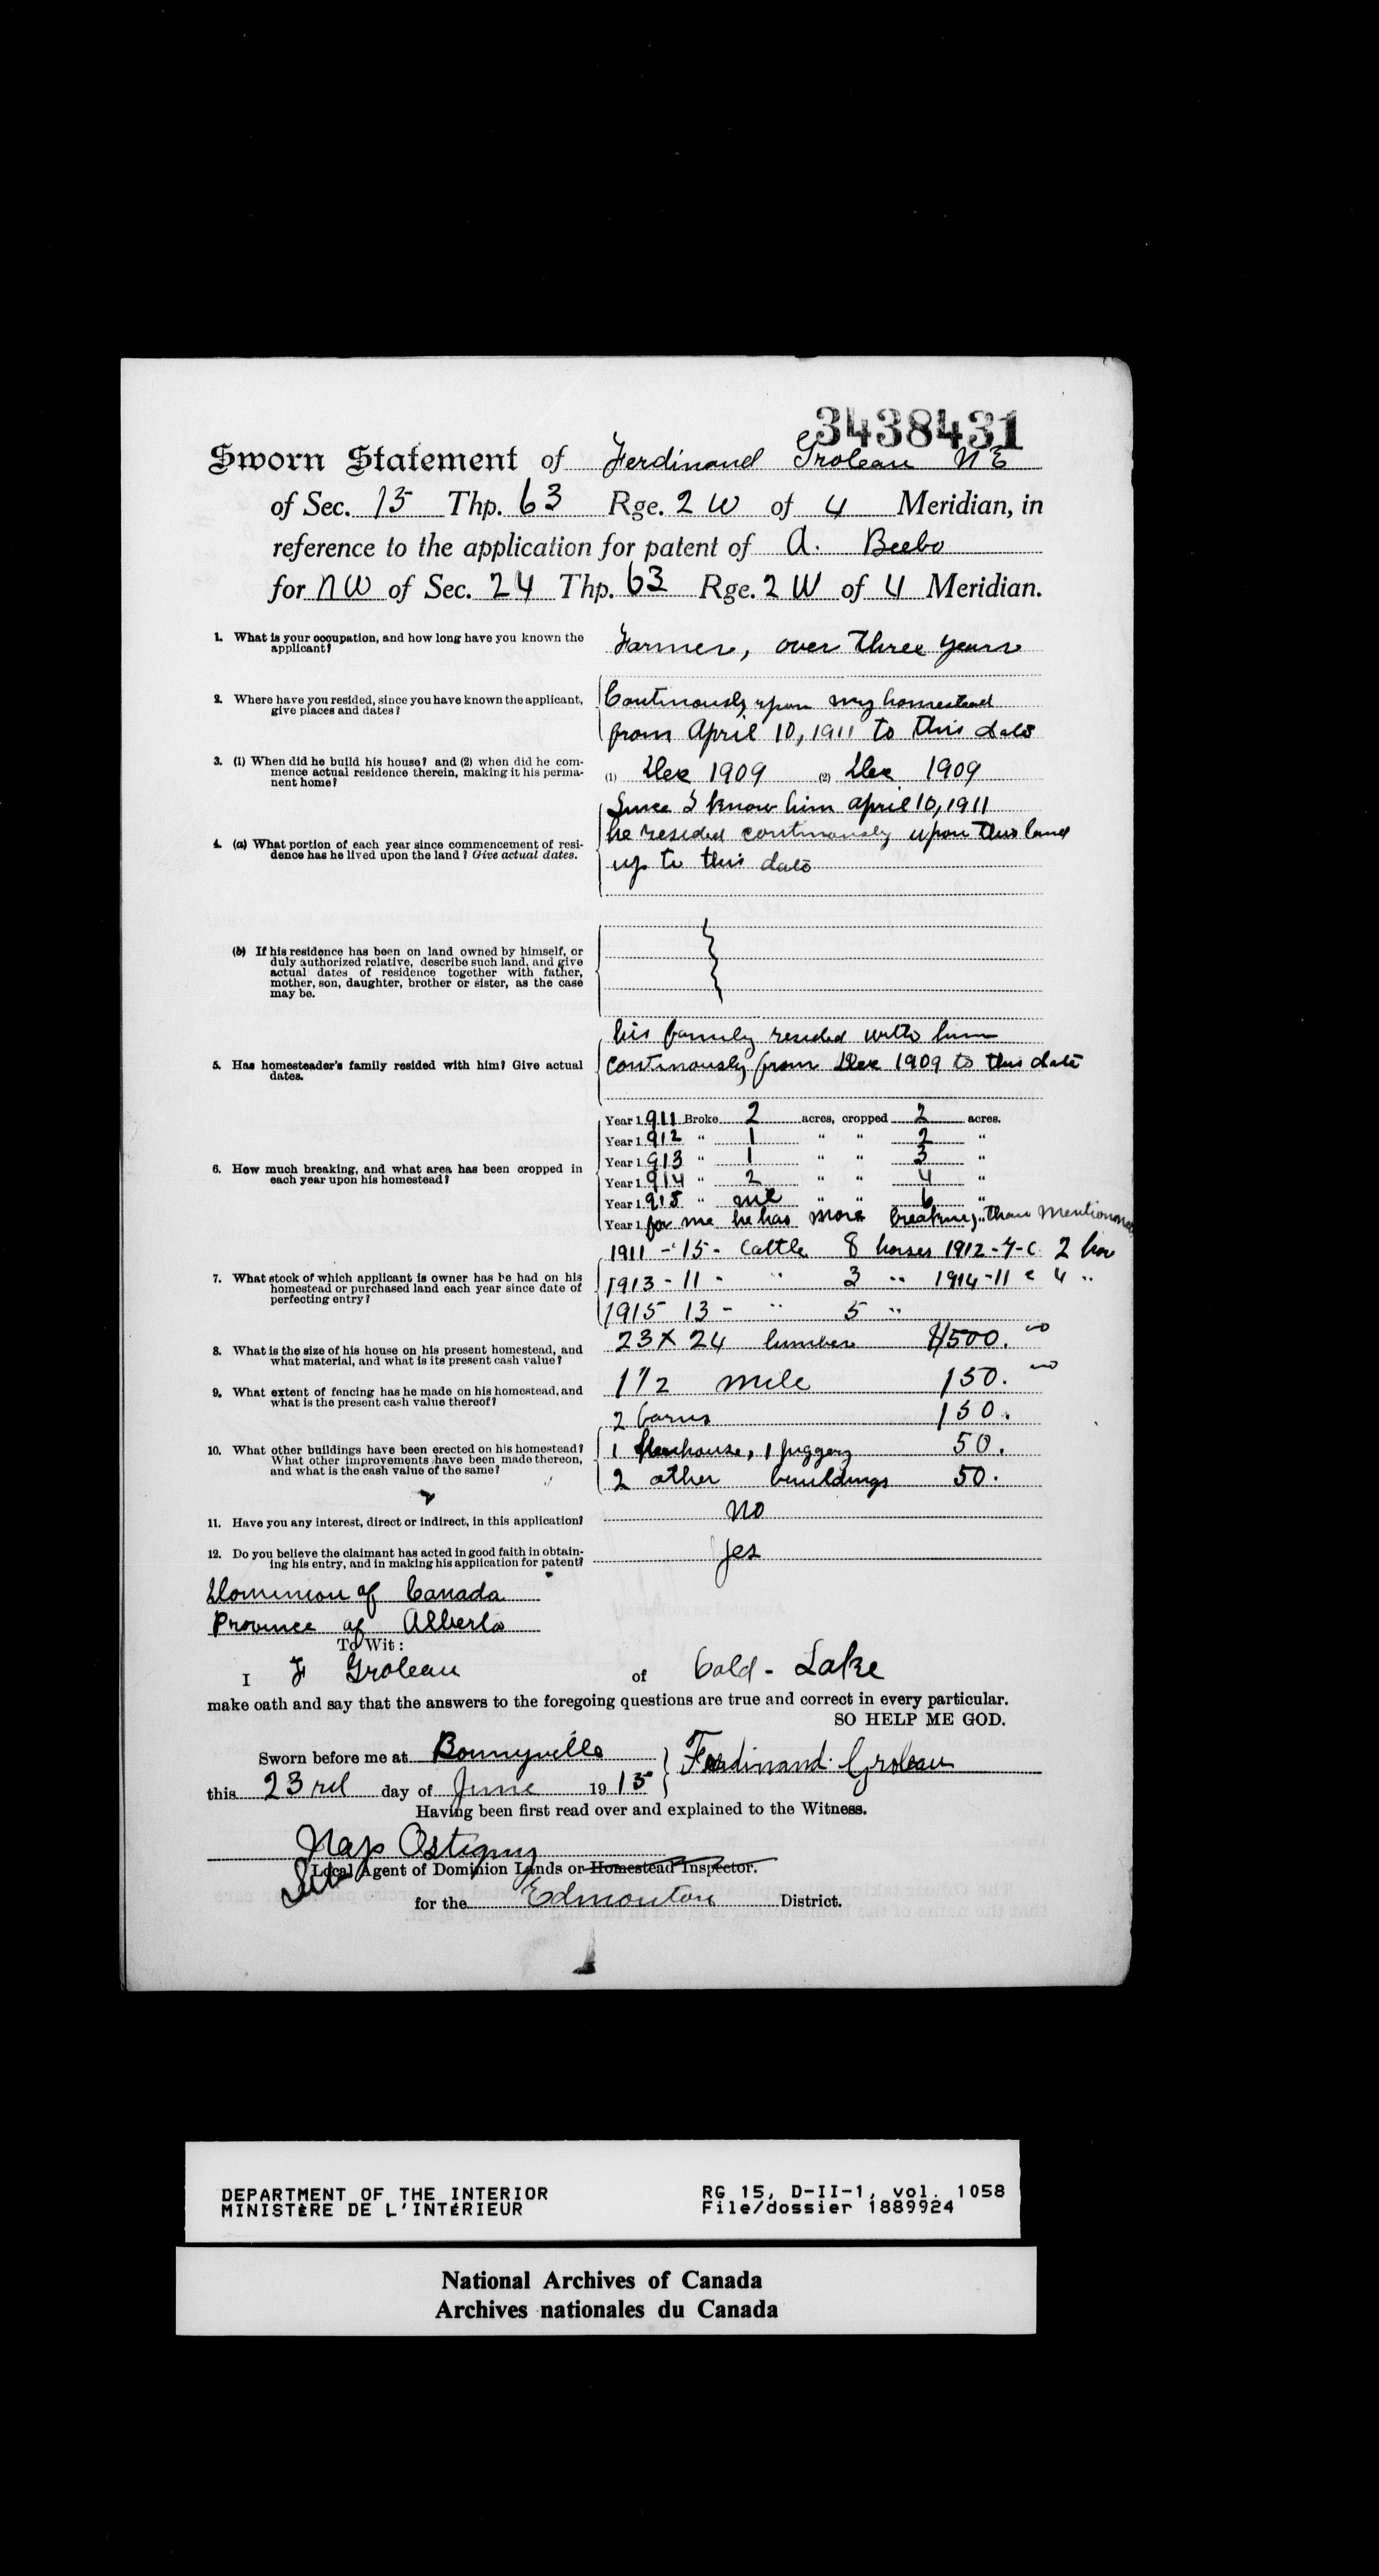 3438431
Sworn Statement of Ferdinand Groleau NE
of Sec. 15 Thp. 63 Rge. 2 W of 4 Meridian, in
reference to the application for patent of A. Beebo
for NW of Sec. 24 Thp. 63 Rge. 2 W of 4 Meridian.
1. What is your occupation, and how long have you known the
applicant?
Farmer, over three years
2. Where have you resided, since you have known the applicant,
give places and dates?
Continously upon my homestead
from April 10, 1911 to this date
3. (1) When did he build his house? and (2) when did he com-
mence actual residence therein, making it his perma-
nent home?
(1) Dec 1909 (2) Dec 1909
4. (a) What portion of each year since commencement of resi-
dence has he lived upon the land? Give actual dates.
Since I know him april 10, 1911
he resided continously upon this land
up to this date
(b) If his residence has been on land owned by himself, or
duly authorized relative, describe such land, and give
actual dates of residence together with father,
mother, son, daughter, brother or sister, as the case
may be.
5. Has homesteader's family resided with him? Give actual
dates.
his family resided with him
continously from Dec 1909 to this date
6. How much breaking, and what area has been cropped in
each year upon his homestead?
Year 1911 Broke 2 acres, cropped 2 acres.
Year 1912 " 1 " " 2 "
Year 1913 " 1 " " 3 "
Year 1914 " 2 " " 4 "
Year 1915 " nil " " 6 "
Year 1 for me he has more breaking than mentioned
7. What stock of which applicant is owner has he had on his
homestead or purchased land each year since date of
perfecting entry?
1911 - 15 - Cattle 8 horses 1912 - 7 - C. 2 hor
1913 - 11 - " 3 " 1914 - 11 c 4 "
1915 13 - " 5 "
8. What is the size of his house on his present homestead, and
what material, and what is its present cash value?
23 X 24 lumber $500.00
9. What extent of fencing has he made on his homestead, and
what is the present cash value thereof?
1 1/2 mile 150.00
10. What other buildings have been erected on his homestead?
What other improvements have been made thereon,
and what is the cash value of the same?
2 barns 150.
1 henhouse, 1 piggery 50.
2 other buildings 50.
11. Have you any interest, direct or indirect, in this application?
no
12. Do you believe the claimant has acted in good faith in obtain-
ing his entry, and in making his application for patent?
yes
Dominion of Canada
Province of Alberta
To Wit:
I F Groleau of Cold - Lake
make oath and say that the answers to the foregoing questions are true and correct in every particular.
SO HELP ME GOD.
Sworn before me at Bonnyville
Ferdinand Groleau
this 23rd day of June 1915
Having been first read over and explained to the Witness.
Nap Ostigny
Sub Local Agent of Dominion Lands or Homestead Inspector.
for the Edmonton District.
DEPARTMENT OF THE INTERIOR
MINISTÈRE DE L'INTÉRIEUR
RG 15, D-II-1, vol. 1058
File/dossier 1889924
National Archives of Canada
Archives nationales du Canada